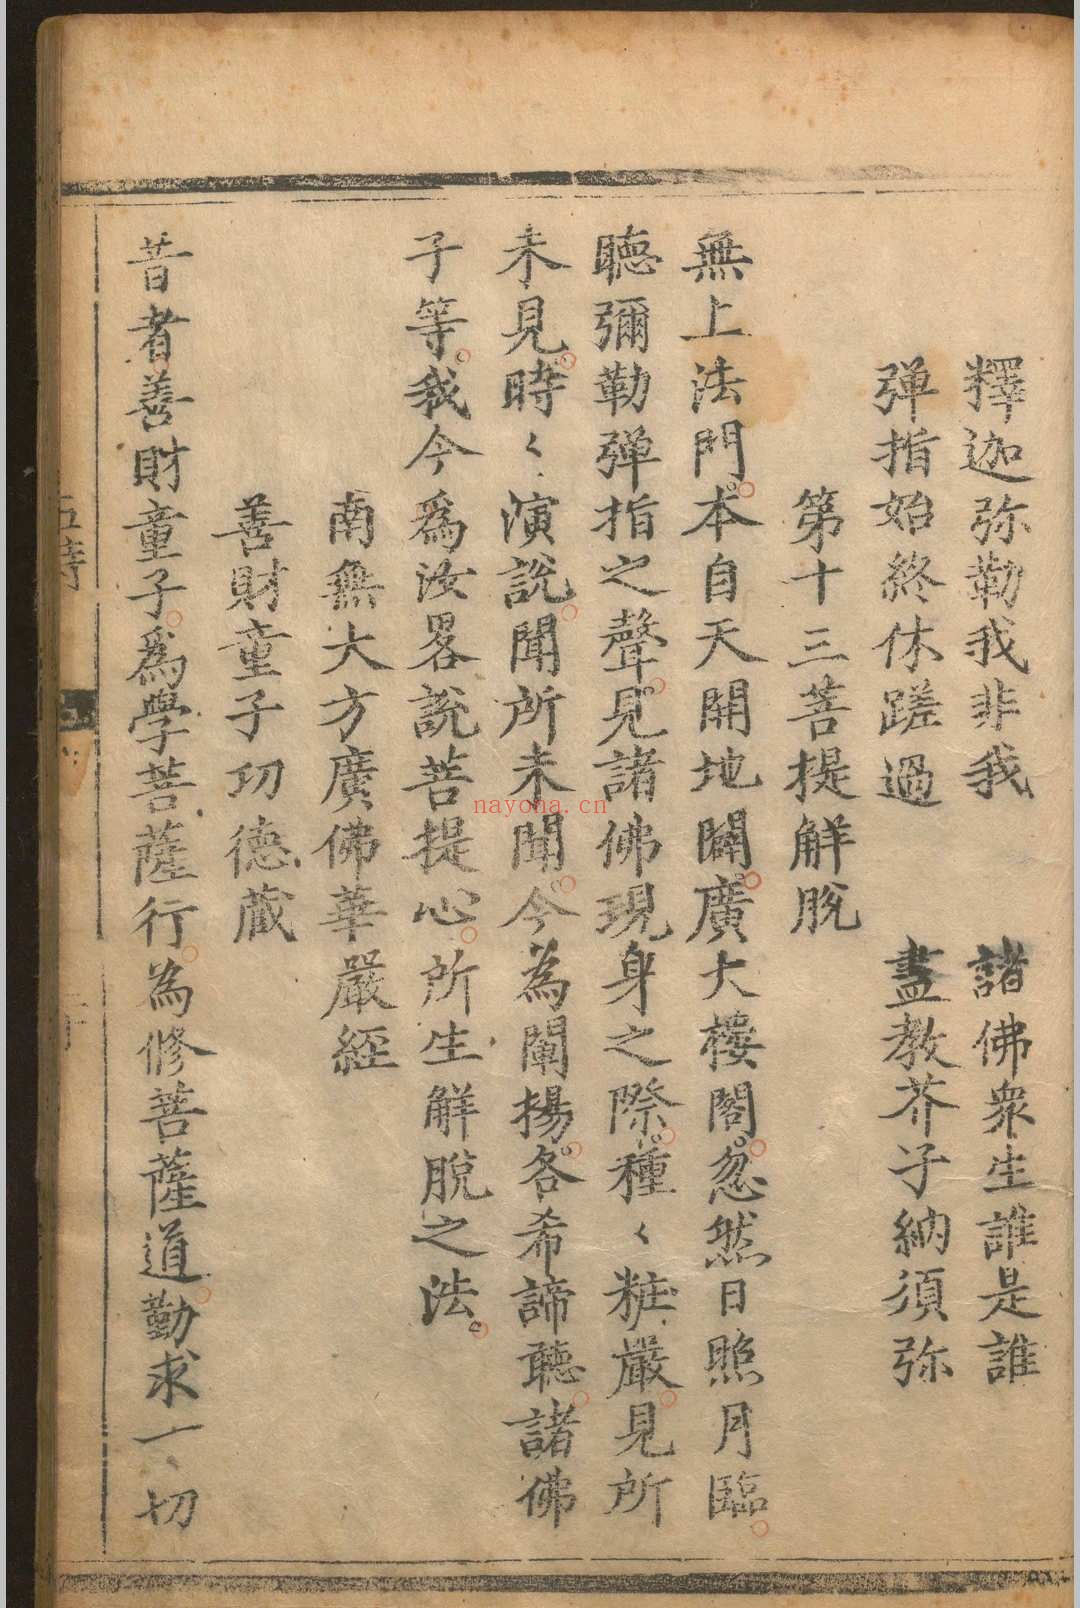 釋迦弥勒我非我　諸佛衆生誰是誰
弹指始終休蹉過　盡教芥子納須弥
第十三菩提解脫
無上法門本自天開地闢廣大樓閣忽然日照月臨
聽彌勒弹指之聲見諸佛現身之際種〻粧嚴見所
未見時〻演說聞所未聞今為闡揚各希諦聽諸佛
子等我今爲汝畧說菩提心所生解脫之法
南無大方廣佛華嚴經
善財童子功德藏
昔者善財童子爲學菩薩行為修菩薩道勤求一切
nayona.cn